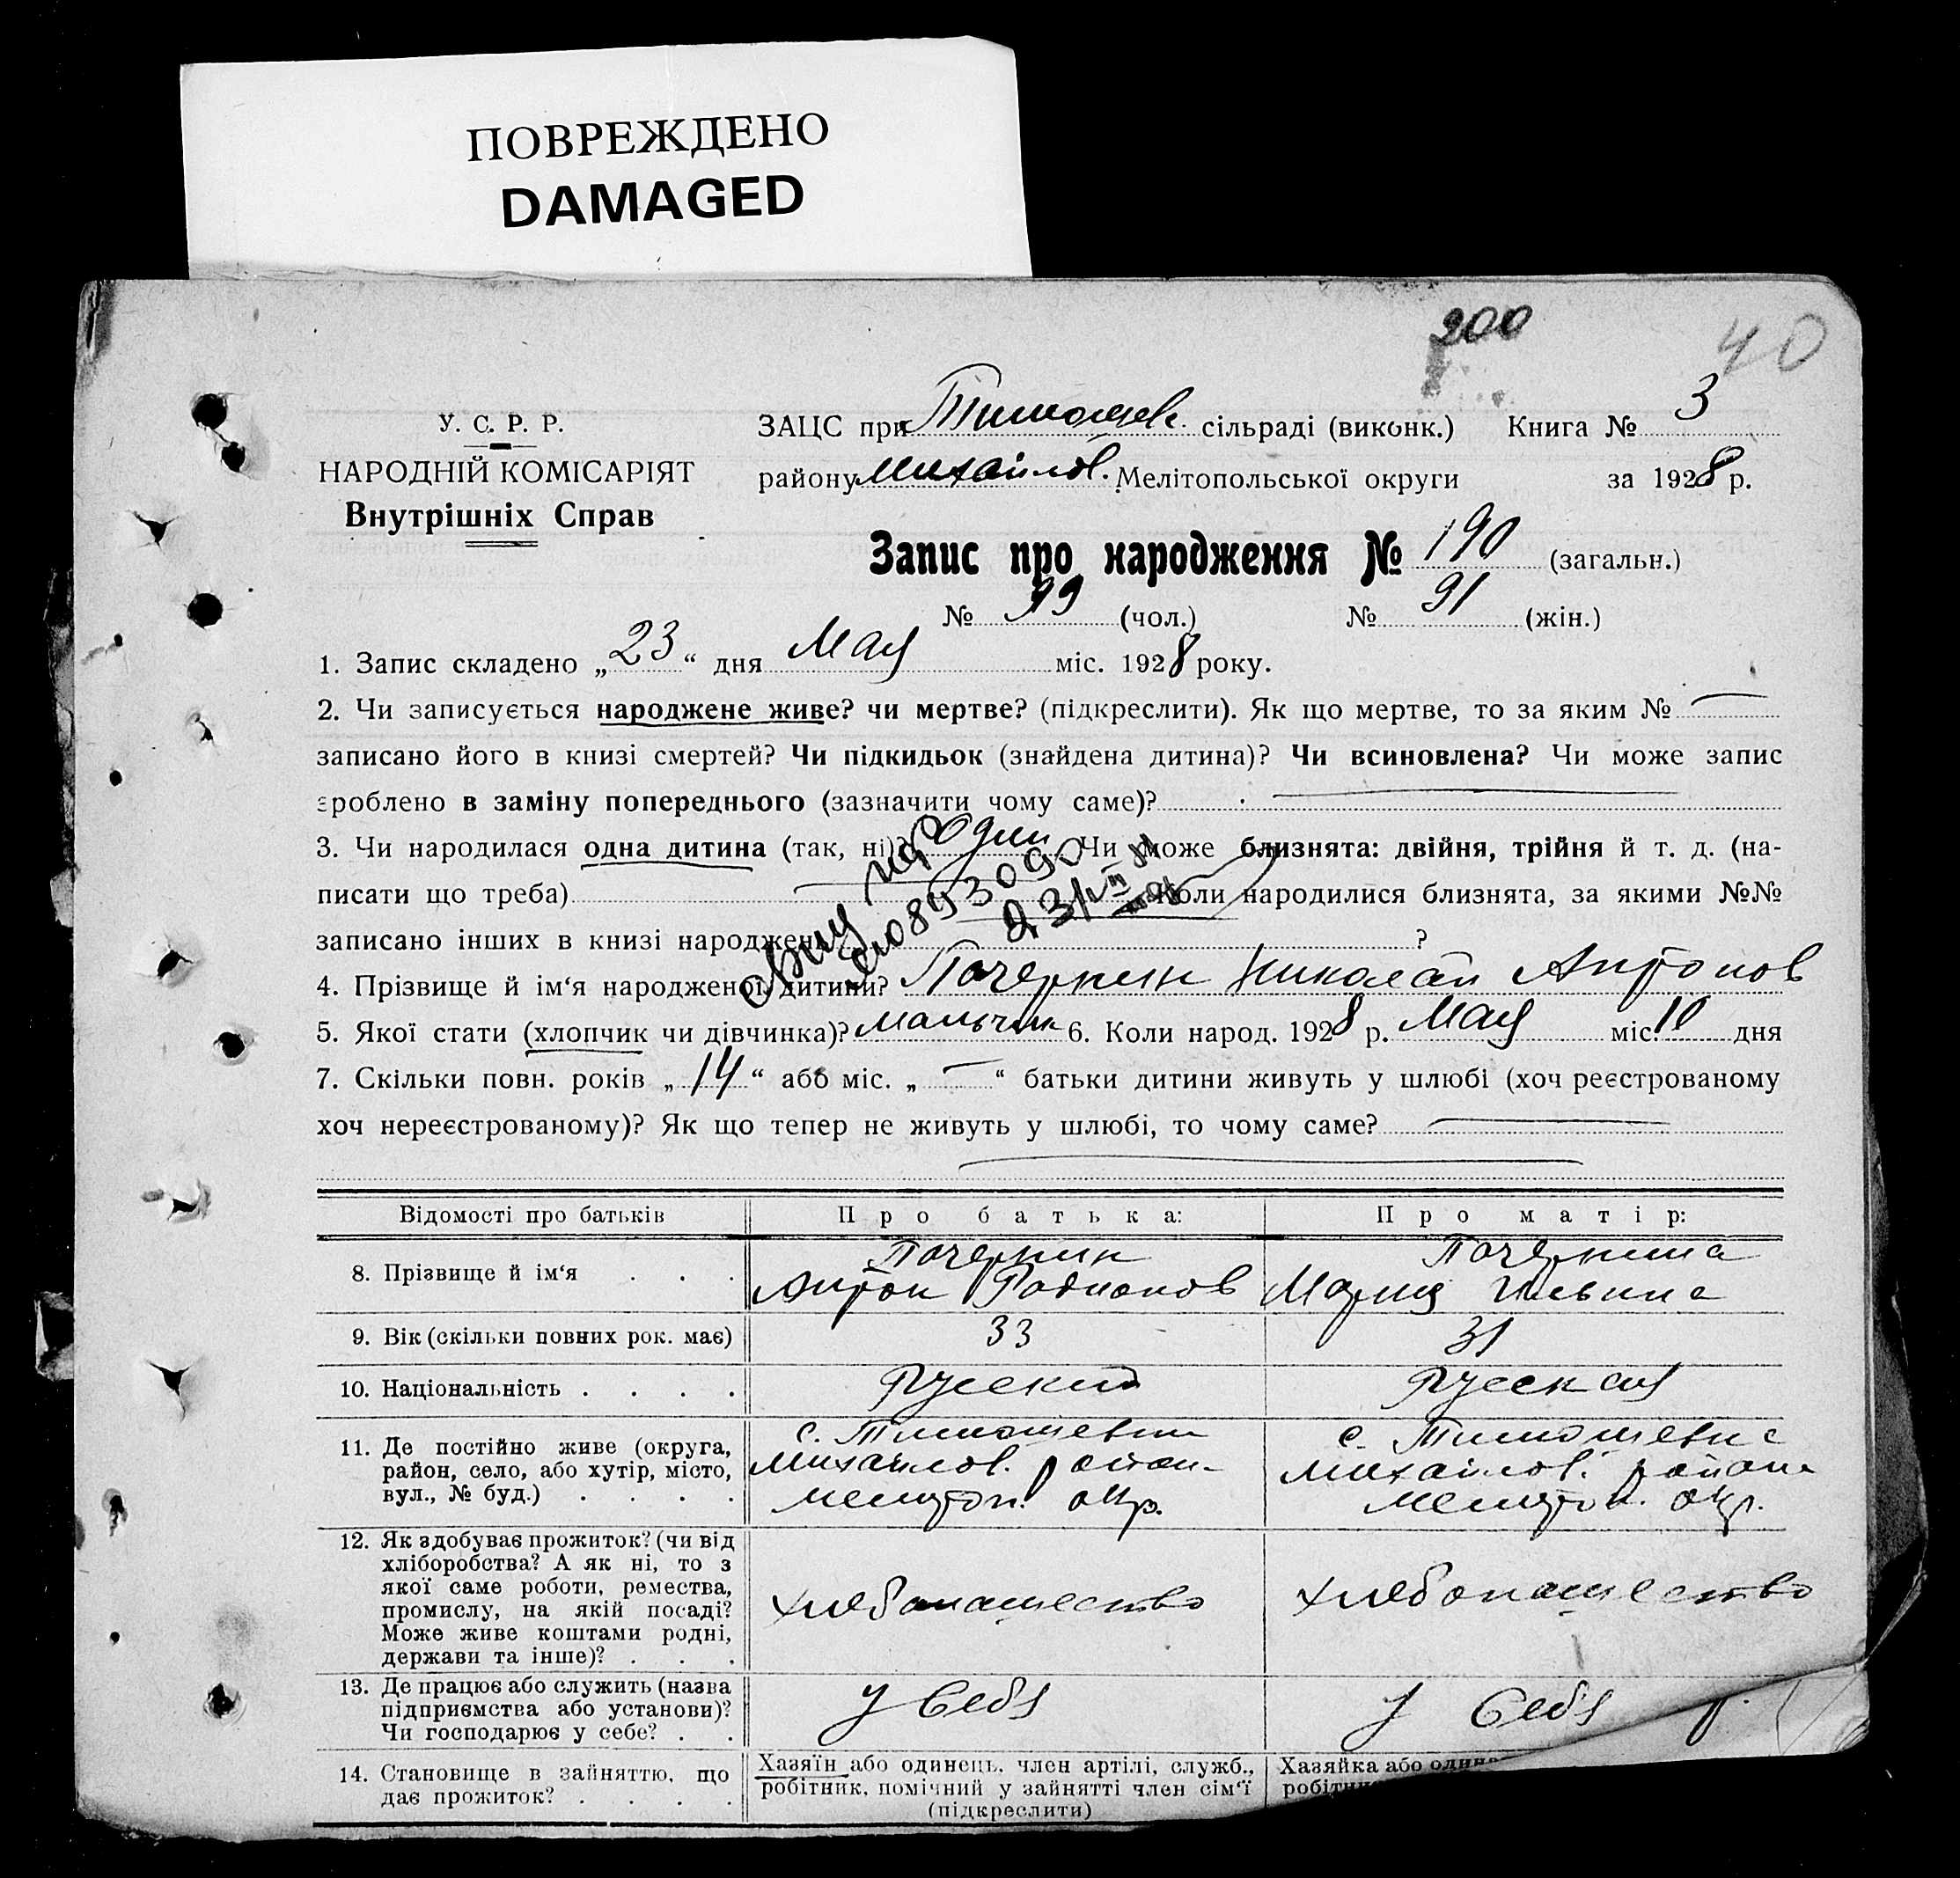 ПОВРЕЖДЕНО
DAMAGED
200
40
У. С. Р. Р.
НАРОДНІЙ КОМІСАРІЯТ
Внутрішніх Справ
ЗАЦС при Тимошев. сільраді (виконк.) Книга № 3
району Михайлов. Мелітопольської округи за 1928 р.
Запис про народження № 190 (загальн.)
№ 99 (чол.) № 91 (жін.)
1. Запис складено „23“ дня Мая міс. 1928 року.
2. Чи записується народжене живе? чи мертве? (підкреслити). Як що мертве, то за яким № —
записано його в книзі смертей? Чи підкидьок (знайдена дитина)? Чи всиновлена? Чи може запис
зроблено в заміну попереднього (зазначити чому саме)? —
3. Чи народилася одна дитина (так, ні)? Один Чи може близнята: двійня, трійня й т. д. (на-
писати що треба) — Коли народилися близнята, за якими №№
записано інших в книзі народжень ?
4. Прізвище й ім‘я народженої дитини? Почеркин Николай Антонов
5. Якої стати (хлопчик чи дівчинка)? Мальчик 6. Коли народ. 1928 р. Мая міс. 10 дня
7. Скільки повн. років „14“ або міс. „—“ батьки дитини живуть у шлюбі (хоч реєстрованому
хоч нереєстрованому)? Як що тепер не живуть у шлюбі, то чому саме? —
Відомості про батьків Про батька: Про матір:
8. Прізвище й ім‘я . . . Почеркин Антон Родионов Почеркина Мария Ильина
9. Вік (скільки повних рок. має) 33 31
10. Національність . . . . Русский Русская
11. Де постійно живе (округа,
район, село, або хутір, місто,
вул., № буд.) . . . .
с. Тимошевка
Михайлов. район
Мелитоп. окр.
с. Тимошевка
Михайлов. района
Мелитоп. окр.
12. Як здобуває прожиток? (чи від
хліборобства? А як ні, то з
якої саме роботи, ремества,
промислу, на якій посаді?
Може живе коштами родні,
держави та інше)? . . .
хлебопашество
хлебопашество
13. Де працює або служить (назва
підприємства або установи)?
Чи господарює у себе? . .
У себя
У себя
14. Становище в зайняттю, що
дає прожиток? . . . .
Хазяїн або одинець, член артілі, служб.,
робітник, помічний у зайнятті член сім‘ї
(підкреслити)
Хазяйка або